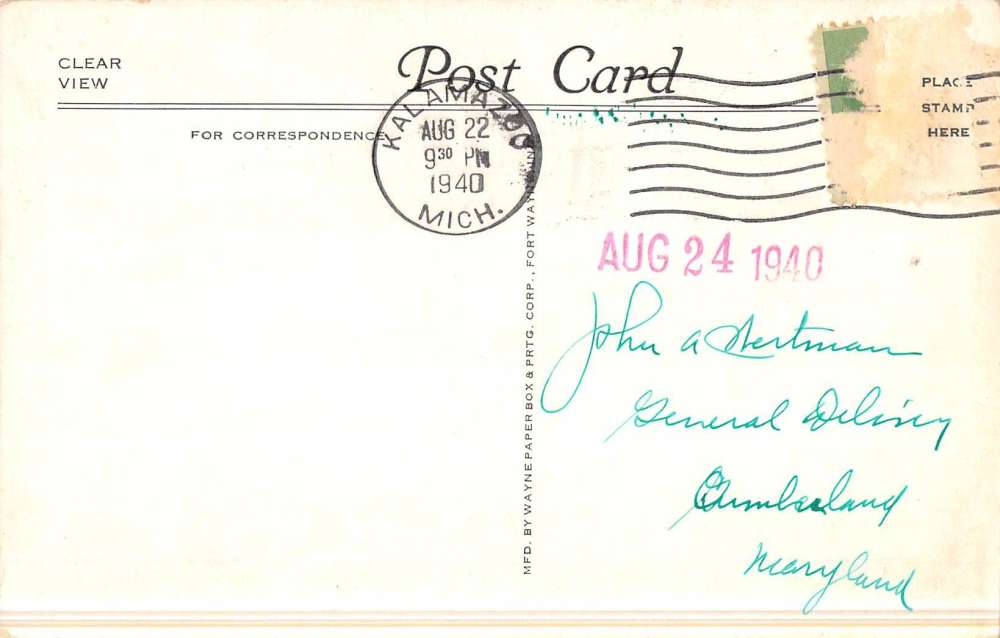 CLEAR
VIEW
Post Card
PLACE
STAMP
HERE
FOR CORRESPONDENCE
KALAMAZOO
AUG 22
9 30 PM
1940
MICH.
MFD. BY WAYNE PAPER BOX & PRTG. CORP., FORT WAYNE, IND.
AUG 24 1940
John A Wertman
General Delivery
Cumberland
Maryland